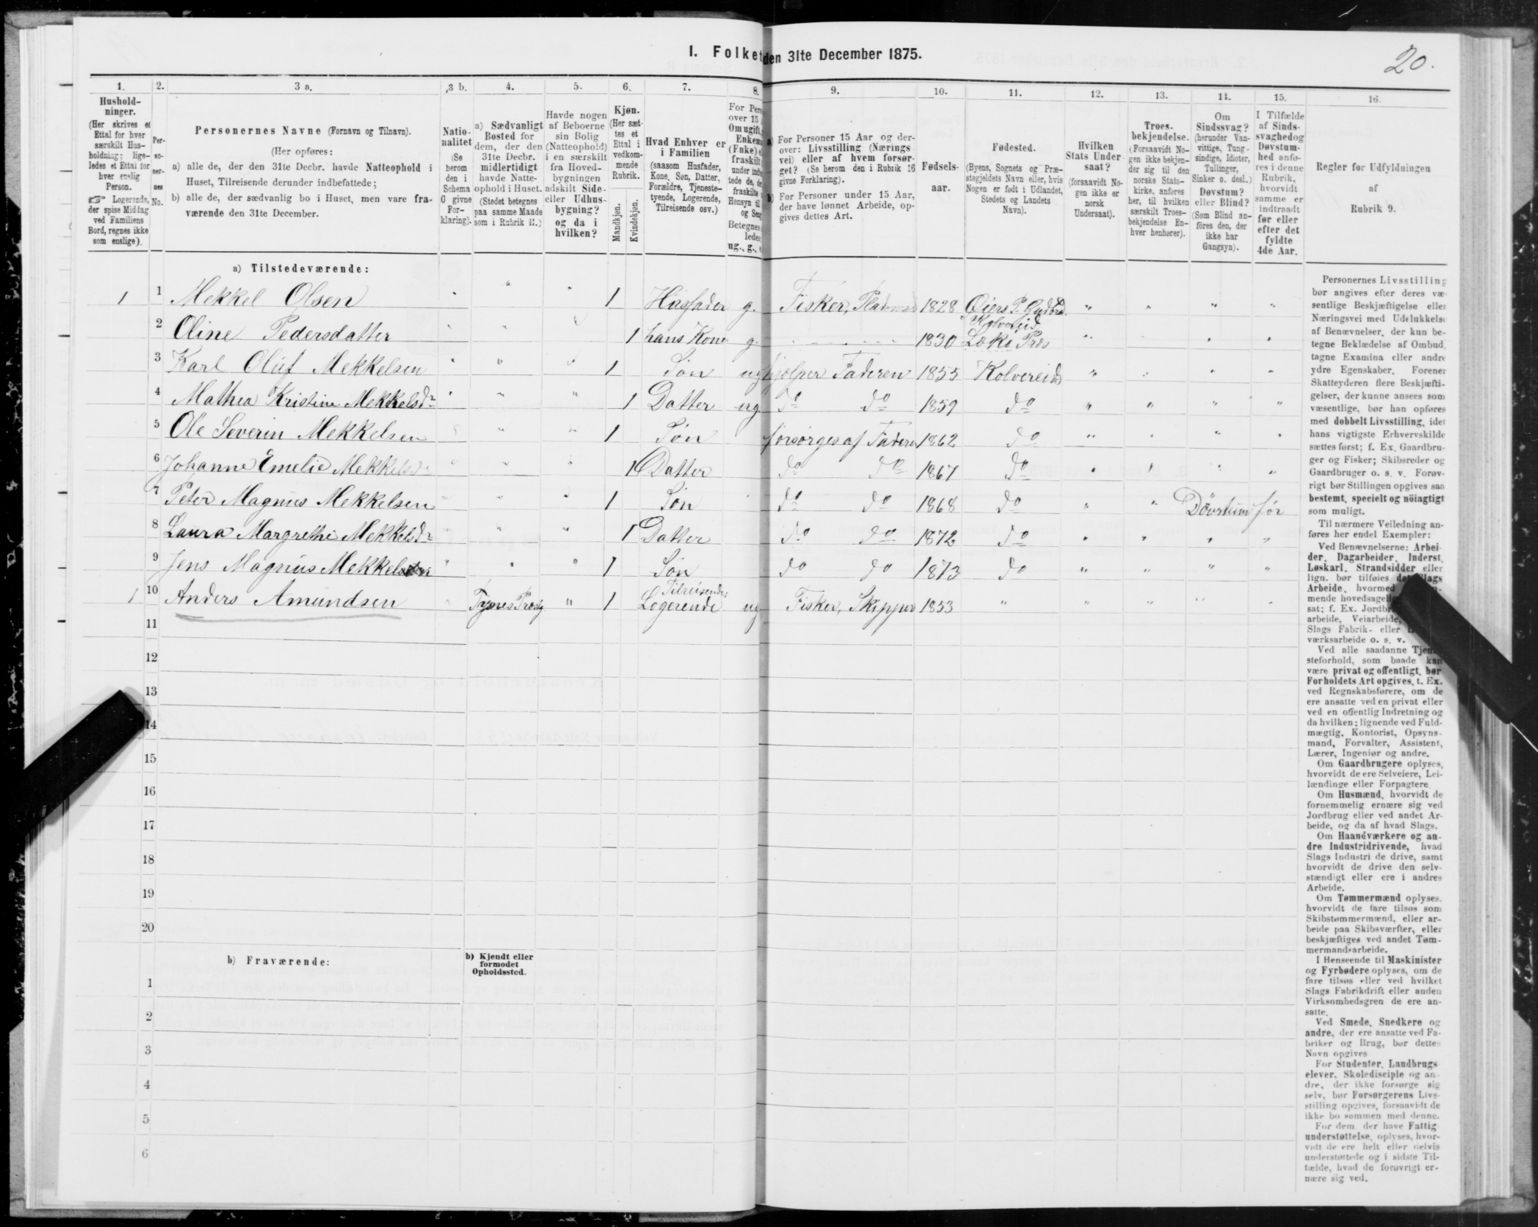 I. Folket
den 31te December 1875.
20.
1.
2.
3 a.
3 b.
4.
5.
6.
7.
8.
9.
10.
11.
12.
13.
14.
15.
16.
Hushold-
ninger.
(Her skrives et
Ettal for hver
særskilt Hus-
holdning; lige-
ledes et Ettal for
hver enslig
Person.
☞ Logerende,
der spise Middag
ved Familiens
Bord, regnes ikke
som enslige).
Per-
so-
ner-
nes
No.
Personernes Navne (Fornavn og Tilnavn).
(Her opføres:
a) alle de, der den 31te Decbr. havde Natteophold i
Huset, Tilreisende derunder indbefattede;
b) alle de, der sædvanlig bo i Huset, men vare fra-
værende den 31te December.
Natio-
nalitet
(Se
herom
den i
Schema
O givne
For-
klaring).
a) Sædvanligt
Bosted for
dem, der den
31te Decbr.
midlertidigt
havde Natte-
ophold i Huset.
(Stedet betegnes
paa samme Maade
som i Rubrik 11.)
Havde nogen
af Beboerne
sin Bolig
(Natteophold)
i en særskilt
fra Hoved-
bygningen
adskilt Side-
eller Udhus-
bygning?
og da i
hvilken?
Kjøn.
(Her sæt-
tes et
Ettal i
vedkom-
mende
Rubrik.
Mandkjøn.
Kvindekjøn.
Hvad Enhver er
i Familien
(saasom Husfader,
Kone, Søn, Datter,
Forældre, Tjeneste-
tyende, Logerende,
Tilreisende osv.)
For Pers
over 15
Om ugift,
Enkem
(Enke)
fraskilt
og Sep
Betegnes
ledes
ug., g.,
a) For Personer 15 Aar og der-
over: Livsstilling (Nærings
vei) eller af hvem forsør-
get? (Se herom den i Rubrik 16
givne Forklaring).
b) For Personer under 15 Aar,
der have lønnet Arbeide, op-
gives dettes Art.
Fødsels-
aar.
Fødested.
(Byens, Sognets og Præ-
stegjeldets Navn eller, hvis
Nogen er født i Udlandet,
Stedets og Landets
Navn).
Hvilken
Stats Under-
saat?
(forsaavidt No-
gen ikke er
norsk
Undersaat).
Troes-
bekjendelse.
(Forsaavidt No-
gen ikke bekjen-
der sig til den
norske Stats-
kirke, anføres
her, til hvilken
særskilt Troes-
bekjendelse En-
hver henhører).
Om
Sindssvag?
(herunder Van-
vittige, Tung-
sindige, Idioter,
Tullinger,
Sinker o. desl.)
Døvstum?
eller Blind?
(Som Blind an-
føres den, der
ikke har
Gangsyn).
I Tilfælde
af Sinds-
svaghed og
Døvstum-
hed anfø-
res i denne
Rubrik,
hvorvidt
samme er
indtraadt
før eller
efter det
fyldte
4de Aar.
Regler for Udfyldningen
af
Rubrik 9.
a) Tilstedeværende:
1 1 Mekkel Olsen " " " 1 Husfader g. Fisker, 1828 " " " "
2 Oline Pedersdatter " " " 1 hans Kone g. 1830 Kolvereid " " " "
3 Karl Oluf Mekkelsen " " " 1 Søn ug hjelper Faderen 1855 Kolvereid " " " "
4 Mathea Kristine Mekkelsdr " " " 1 Datter ug do do 1859 do " " " "
5 Ole Severin Mekkelsen " " " 1 Søn forsørges af Faderen 1862 do " " " "
6 Johanne Emelie Mekkelsdr " " " 1 Datter do do 1867 do " " " "
7 Peter Magnus Mekkelsen " " " 1 Søn do do 1868 do " " Døvstum før
8 Laura Margrethe Mekkelsdr " " " 1 Datter do do 1872 do " " " "
9 Jens Magnus Mekkelsen " " " 1 Søn do do 1873 do " " " "
1 10 Anders Amundsen " 1 Tilreisende, Logerende ug Fisker, Skipper 1853 " " " " "
11
12
13
14
15
16
17
18
19
20
b) Fraværende:
b) Kjendt eller
formodet
Opholdssted.
1
2
3
4
5
6
Personernes Livsstilling
bør angives efter deres væ-
sentlige Beskjæftigelse eller
Næringsvei med Udelukkelse
af Benævnelser, der kun be-
tegne Beklædelse af Ombud,
tagne Examina eller andre
ydre Egenskaber. Forener
Skatteyderen flere Beskjæfti-
gelser, der kunne ansees som
væsentlige, bør han opføres
med dobbelt Livsstilling, idet
hans vigtigste Erhvervskilde
sættes først; f. Ex. Gaardbru-
ger og Fisker; Skibsreder og
Gaardbruger o. s. v. Forøv-
rigt bør Stillingen opgives saa
bestemt, specielt og nöiagtigt
som muligt.
Til nærmere Veiledning an-
føres her endel Exempler:
Ved Benævnelserne: Arbei-
der, Dagarbeider, Inderst,
Løskarl, Strandsidder eller
lign. bør tilføies det Slags
Arbeide, hvormed
mende hovedsagel
sat; f. Ex. Jordbr
arbeide, Veiarbeide,
Slags Fabrik- eller
værksarbeide o. s. v.
Ved alle saadanne Tjen
steforhold, som baade kan
være privat og offentligt, bør
Forholdets Art opgives, t. Ex.
ved Regnskabsførere, om de
ere ansatte ved en privat eller
ved en offentlig Indretning og
da hvilken; lignende ved Fuld-
mægtig, Kontorist, Opsyns-
mand, Forvalter, Assistent,
Lærer, Ingeniør og andre.
Om Gaardbrugere oplyses,
hvorvidt de ere Selveiere, Lei-
lændinge eller Forpagtere.
Om Husmænd, hvorvidt de
fornemmelig ernære sig ved
Jordbrug eller ved andet Ar-
beide, og da af hvad Slags.
Om Haandværkere og an-
dre Industridrivende, hvad
Slags Industri de drive, samt
hvorvidt de drive den selv-
stændigt eller ere i andres
Arbeide.
Om Tømmermænd oplyses,
hvorvidt de fare tilsøs som
Skibstømmermænd, eller ar-
beide paa Skibsværfter, eller
beskjæftiges ved andet Tøm-
mermandsarbeide.
I Henseende til Maskinister
og Fyrbødere oplyses, om de
fare tilsøs eller ved hvilket
Slags Fabrikdrift eller anden
Virksomhedsgren de ere an-
satte.
Ved Smede, Snedkere og
andre, der ere ansatte ved Fa-
briker og Brug, bør dettes
Navn opgives
For Studenter, Landbrugs
elever, Skoledisciple og an-
dre, der ikke forsørge sig
selv, bør Forsørgerens Livs-
stilling opgives, forsaavidt de
ikke bo sammen med denne.
For dem, der have Fattig
understøttelse, oplyses, hvor-
vidt de ere helt eller delvis
understøttede og i sidste Til-
fælde, hvad de forøvrigt er-
nære sig ved.